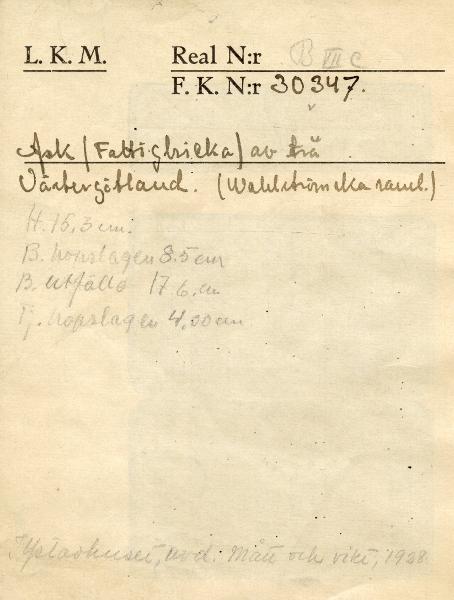 L. K. M. Real N:r B VII c
F. K. N:r 30347.
Ask (Fattigbricka) av trä
Västergötland. (Wahlströmska saml.)
H. 15,3 cm.
B. hopslagen 8.5 cm
B. utfälld 17 6. cm
Tj. hopslagen 4,00 cm
avd. Mått och vikt, 1928